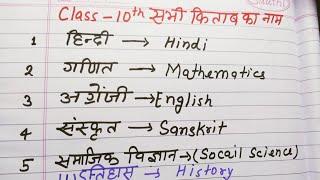 Class - 10th सभी किताब का नाम
1 हिन्दी → Hindi
2 गणित → Mathematics
3 अग्रेंजी → English
4 संस्कृत → Sanskrit
5 समाजिक विज्ञान → (Socail Science)
इतिहास → History